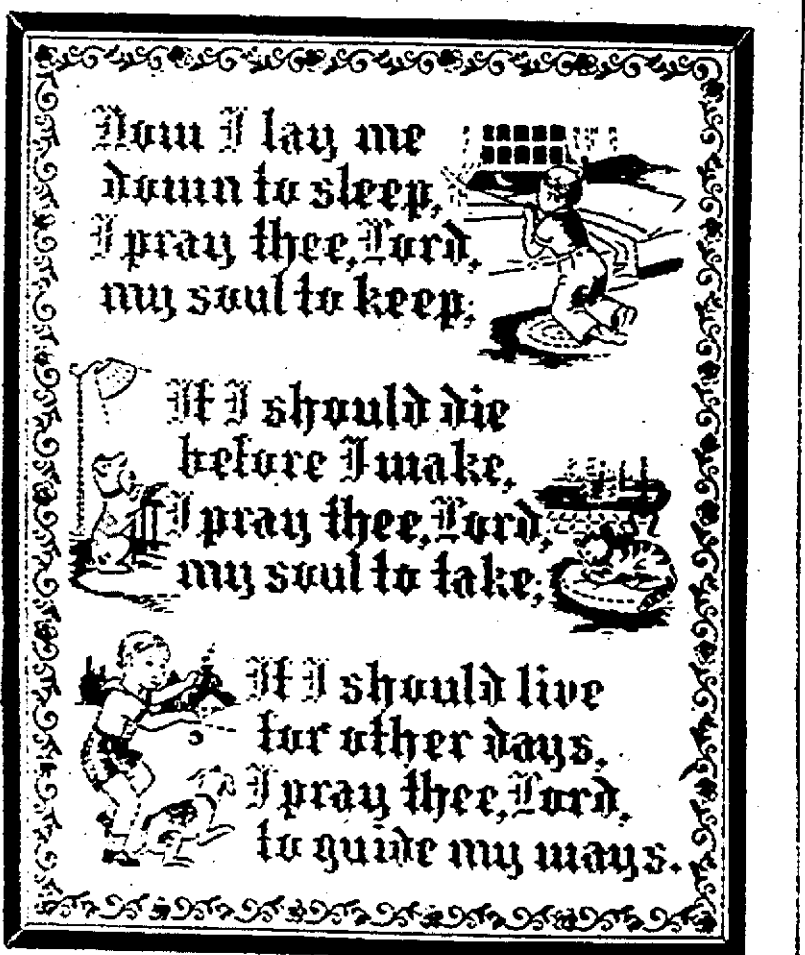 Now I lay me
down to sleep,
I pray thee, Lord,
my soul to keep;
If I should die
before I wake,
I pray thee, Lord,
my soul to take;
If I should live
for other days,
I pray thee, Lord,
to guide my ways.